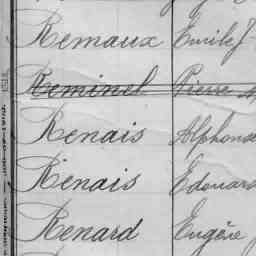 Remaux Emile J
Reminel Pierre
Renais Alphonse
Renais Edouard
Renard Eugène